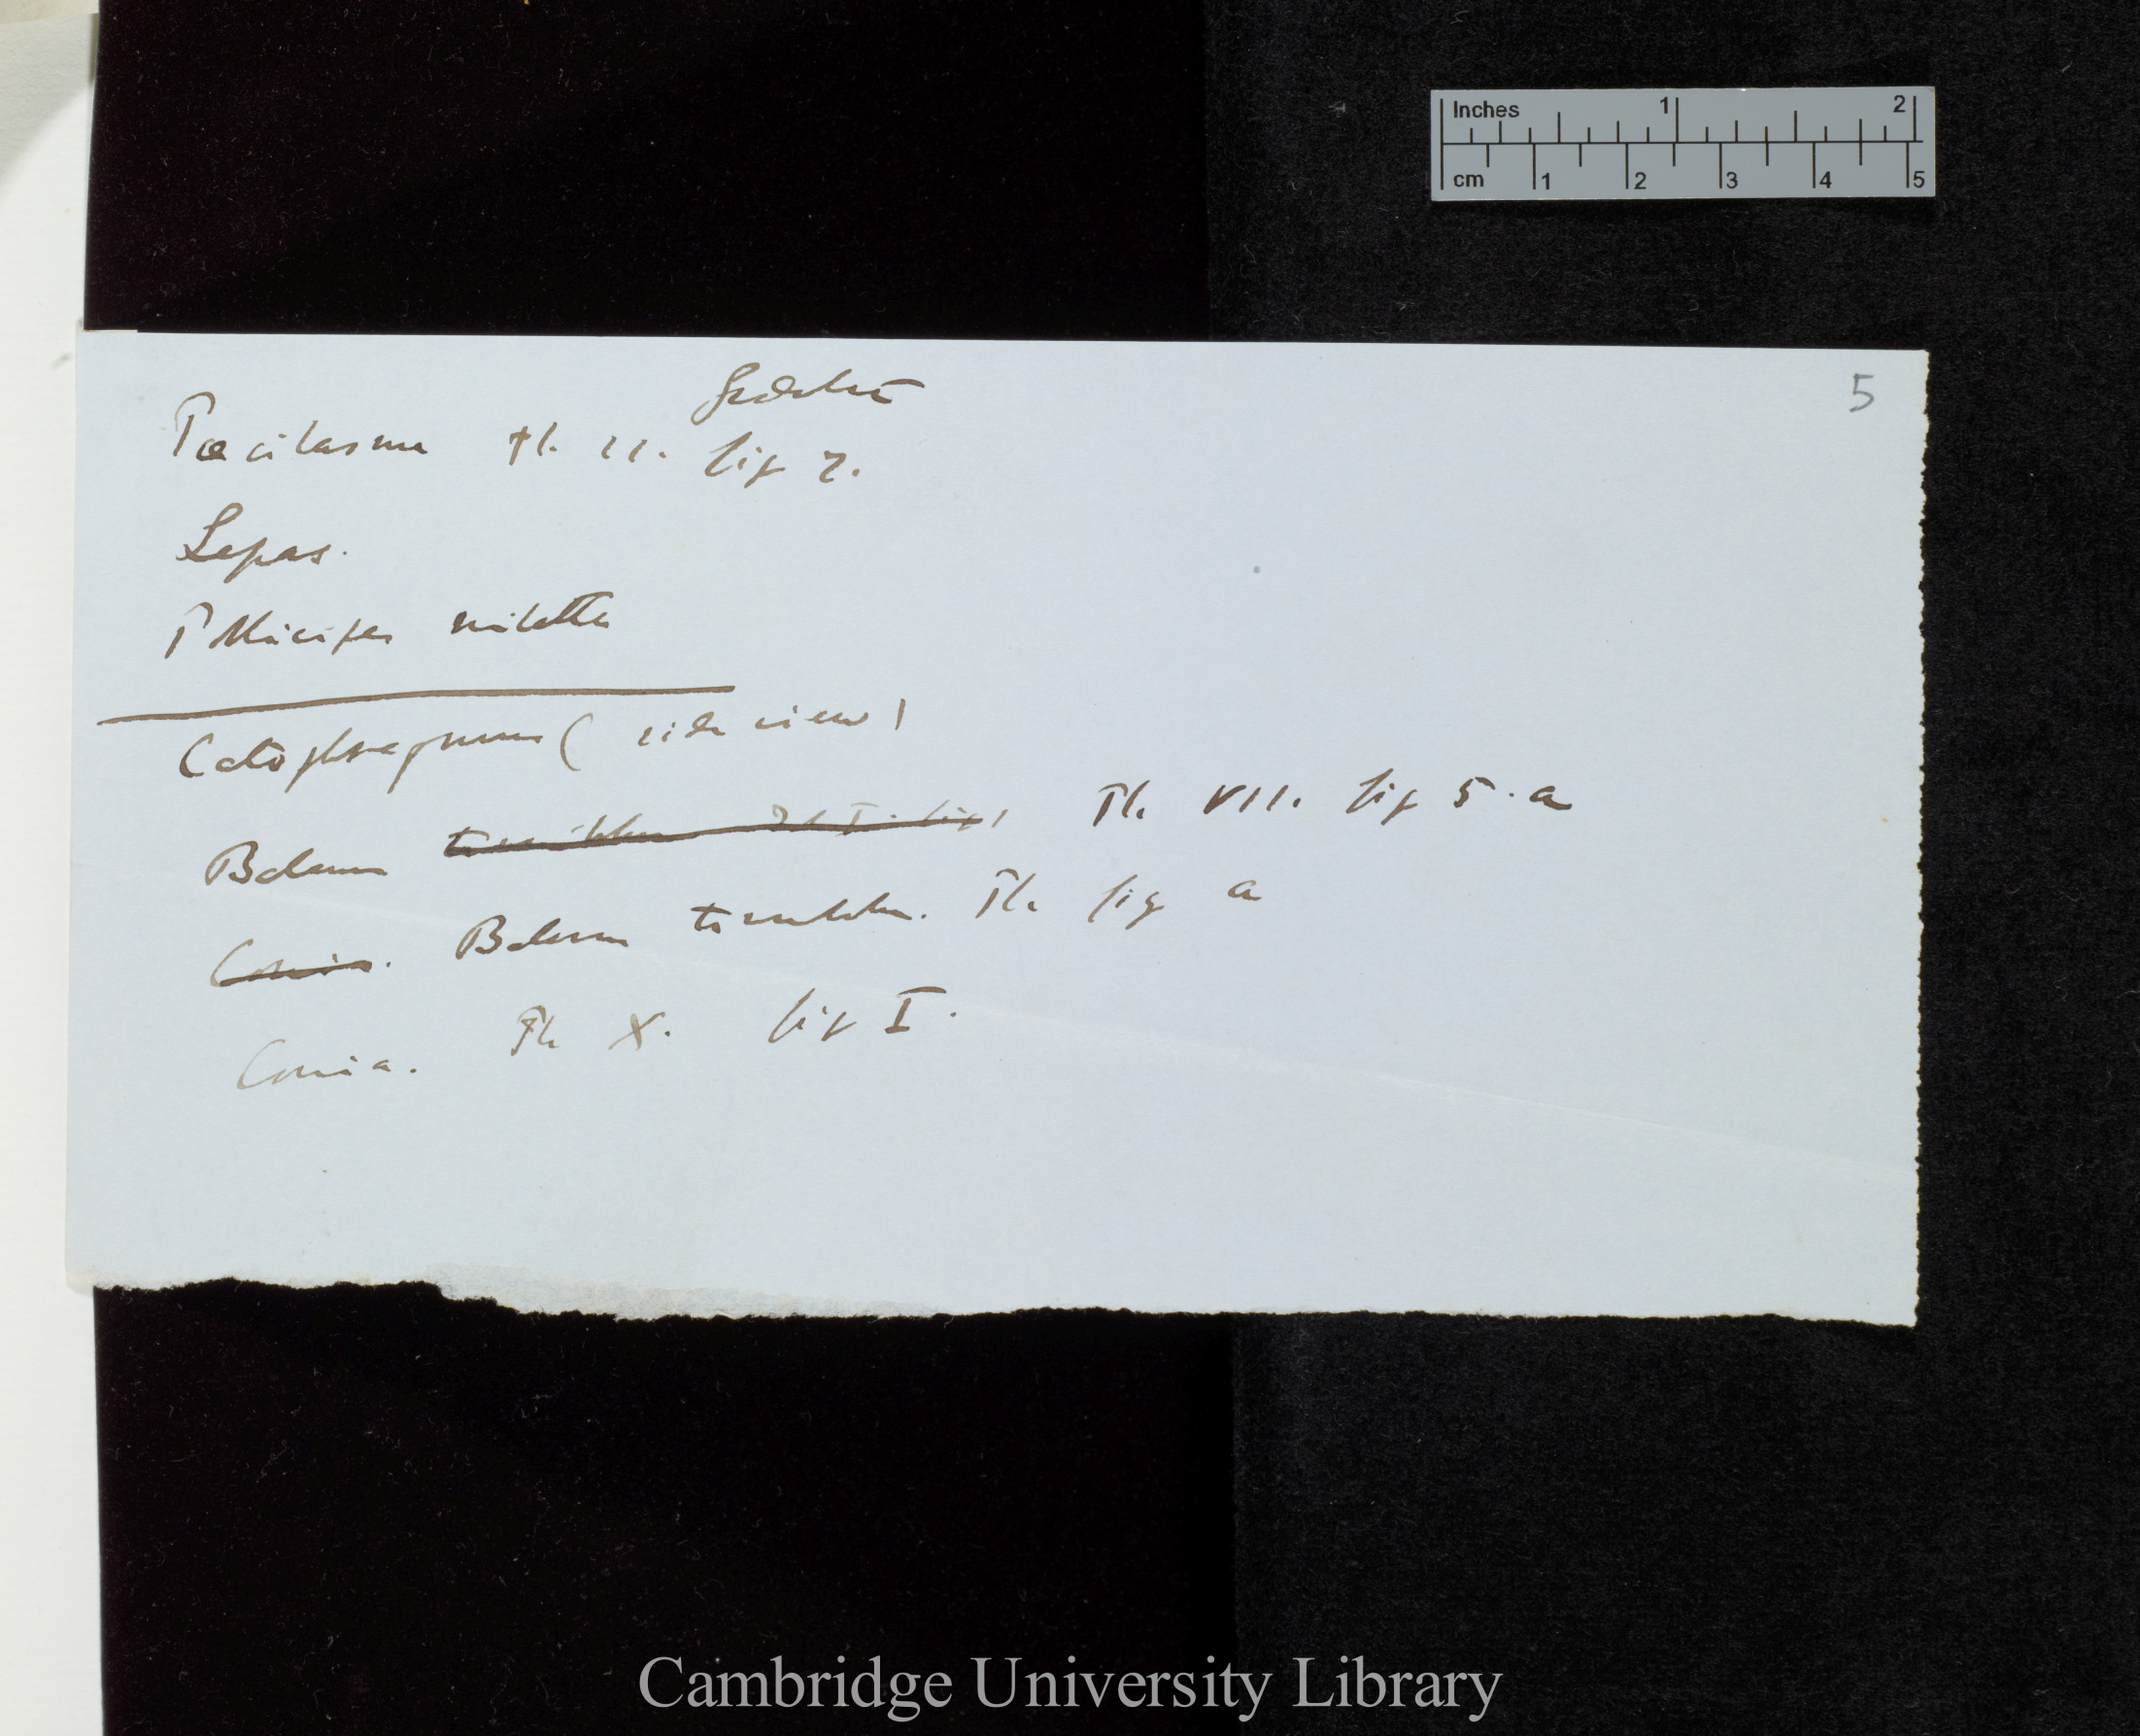 Inches 1 2
cm 1 2 3 4 5
5
Pœcilasma Pl. II. fig 2.
Lepas.
Pollicipes mitella
Catophragmus (side view)
Balanus tintinnabulum Pl I. fig 1 Pl. VII. fig 5. a
Conia. Balanus Pl. fig a
Conia. Pl X. fig I.
Cambridge University Library